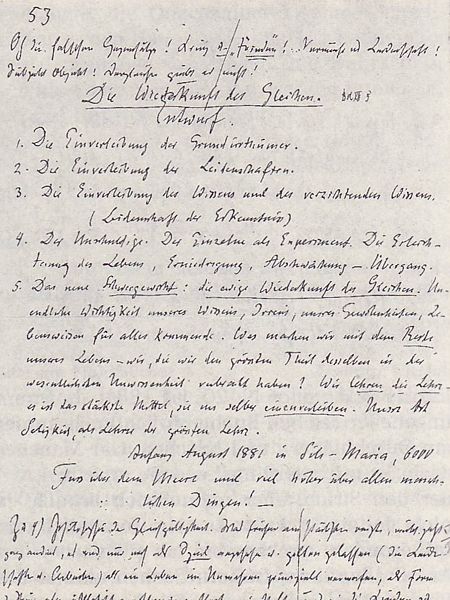 53
Oh die falschen Gegensätze! Krieg u. „Frieden“! Vernunft und Leidenschaft!
Subjekt Objekt! Dergleichen giebt es nicht!
Die Wiederkunft des Gleichen.
Entwurf.
1. Die Einverleibung der Grundirrthümer.
2. Die Einverleibung der Leidenschaften.
3. Die Einverleibung des Wissens und des verzichtenden Wissens.
(Leidenschaft der Erkenntniß)
4. Der Unschuldige. Der Einzelne als Experiment. Die Erleich-
terung des Lebens, Erniedrigung, Abschwächung – Übergang.
5. Das neue Schwergewicht: die ewige Wiederkunft des Gleichen. Un-
endliche Wichtigkeit unseres Wissens, Irrens, unsrer Gewohnheiten, Le-
bensweisen für alles Kommende. Was machen wir mit dem Reste
unseres Lebens – wir, die wir den grössten Theil desselben in der
wesentlichsten Unwissenheit verbracht haben? Wir lehren die Lehre –
es ist das stärkste Mittel, sie uns selber einzuverleiben. Unsre Art
Seligkeit, als Lehrer der grössten Lehre.
Anfang August 1881 in Sils-Maria, 6000
Fuss über dem Meere und viel höher über allen mensch-
lichen Dingen. –
Zu 4) Philosophie der Gleichgültigkeit. Was früher am stärksten reizte, wirkt jetzt
ganz anders, es wird nur noch als Spiel angesehn u. gelten gelassen (die Leiden-
schaften u. Arbeiten) als ein Leben im Unwahren principiell verworfen, als Form